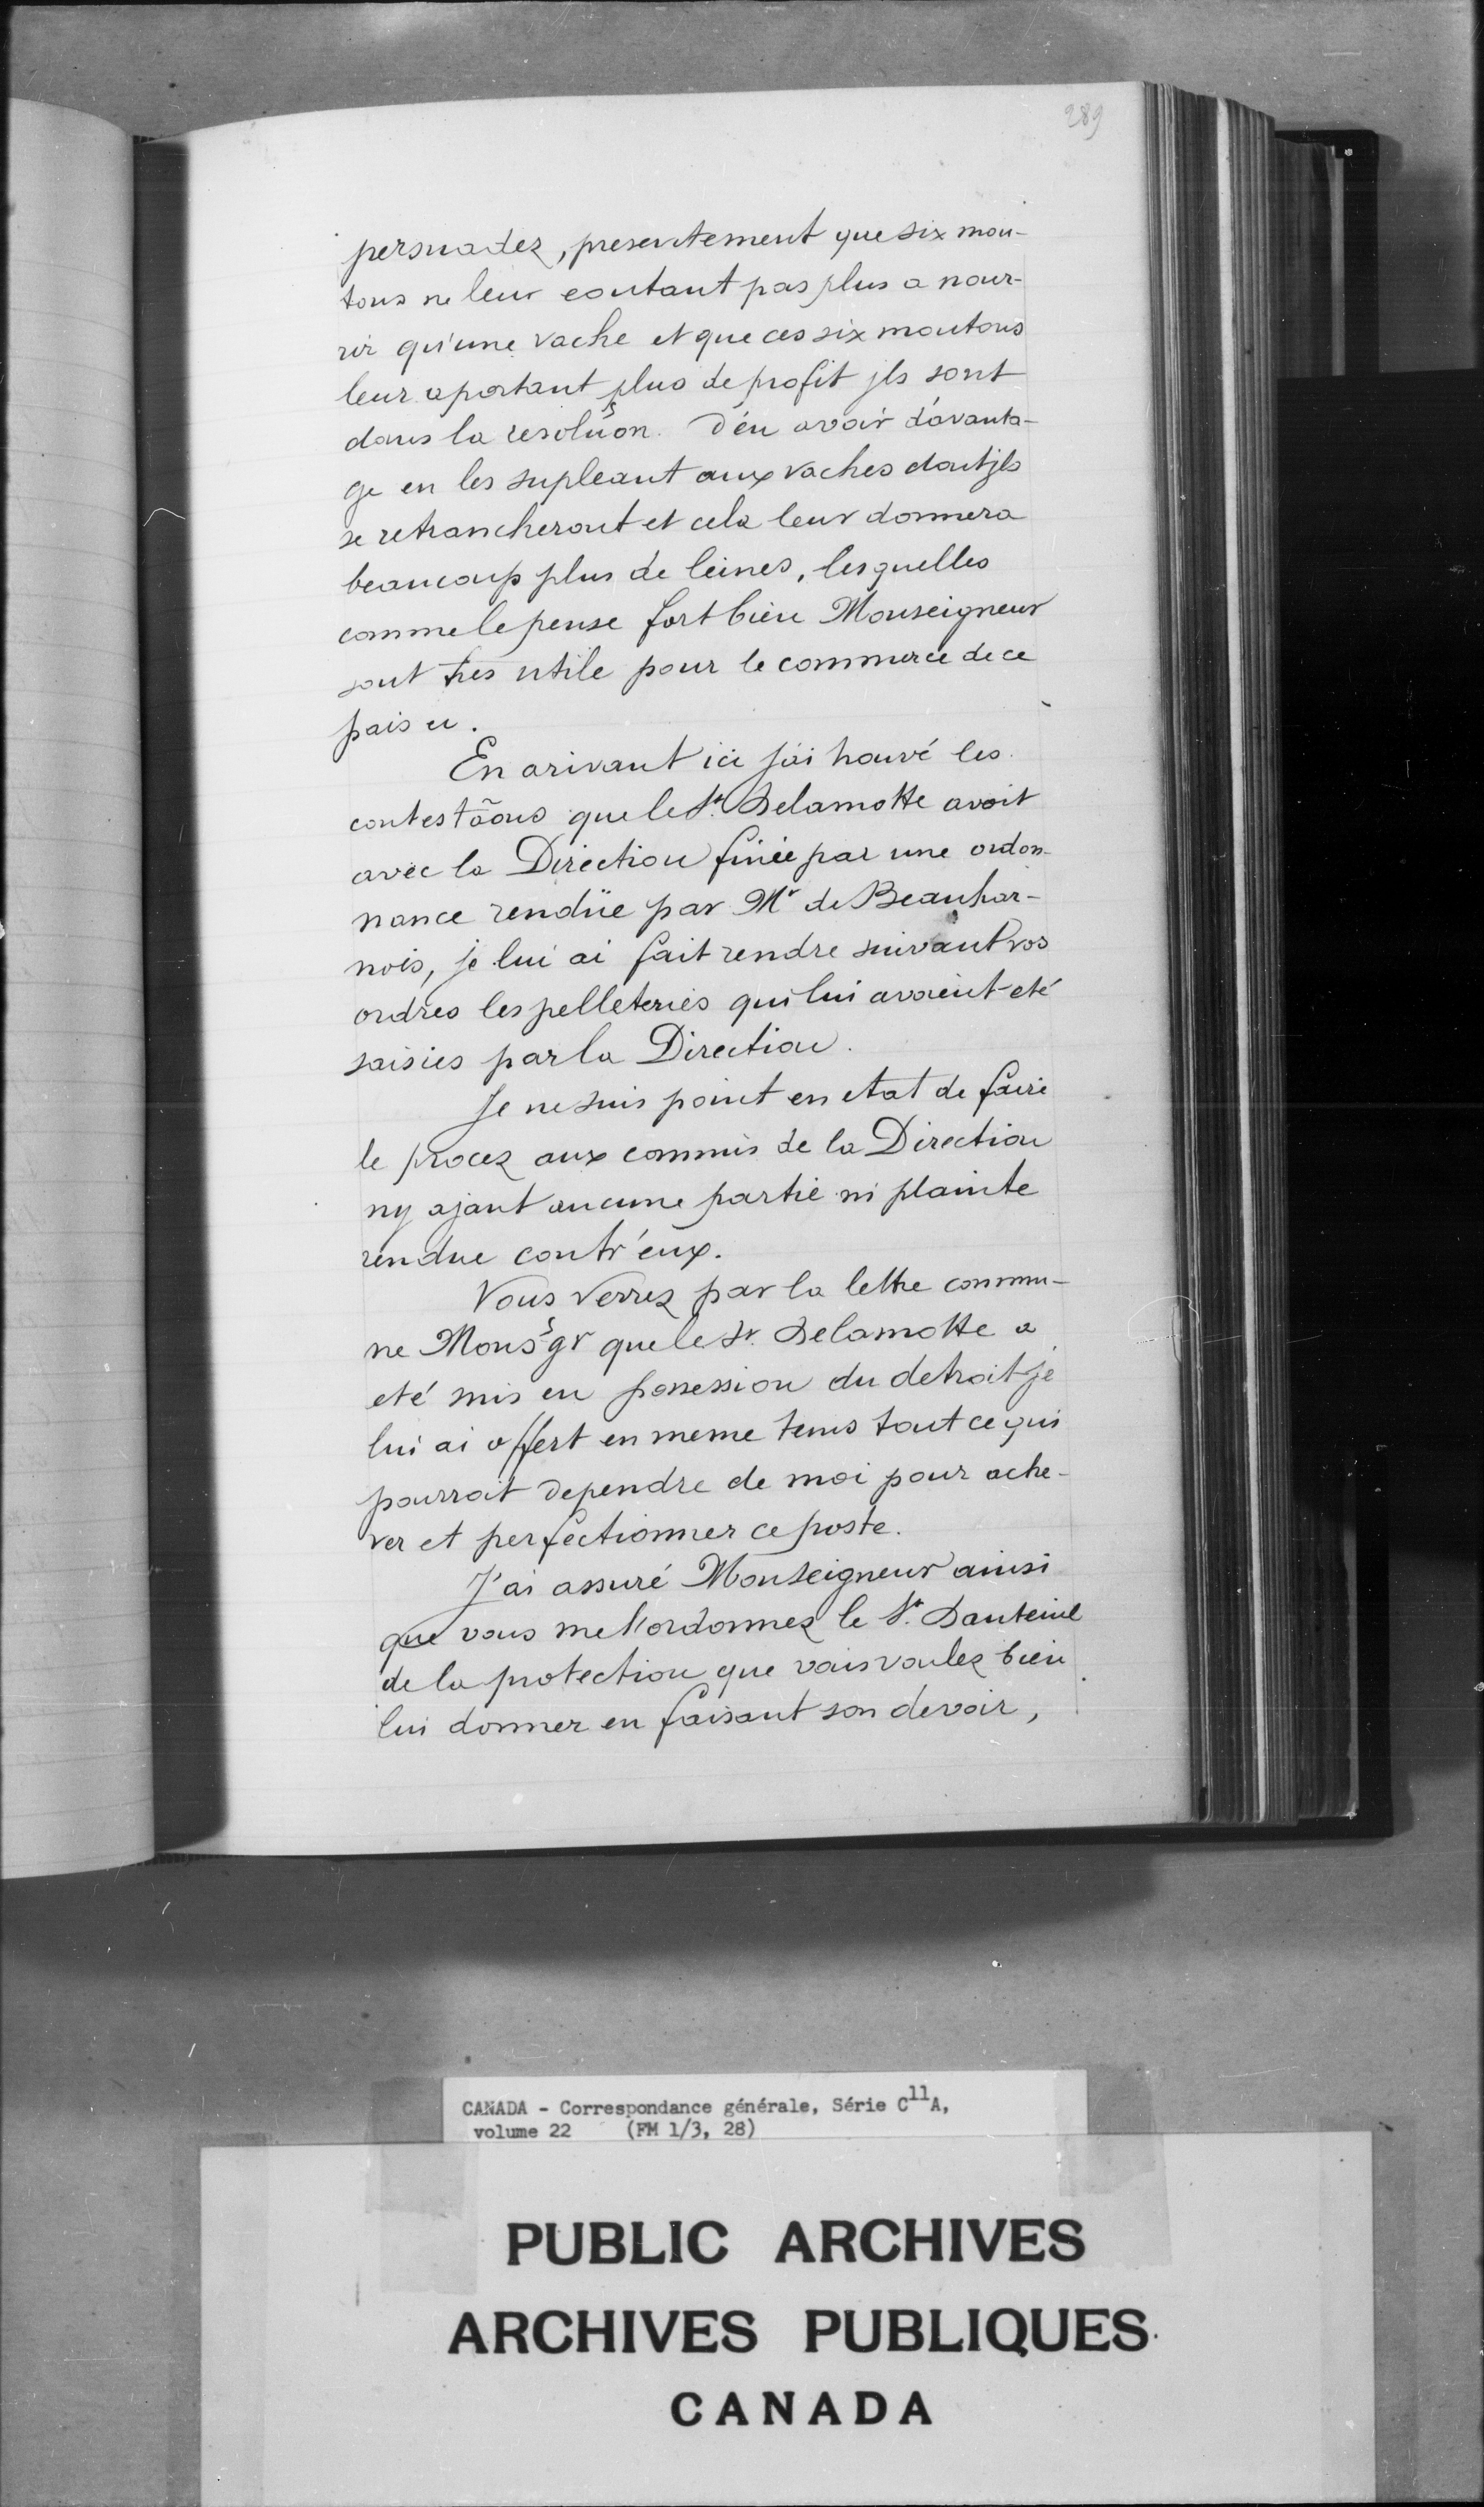 289
persuadez, presentement que six mou-
tons ne leur coutant pas plus a nour-
rir qu'une vache et que ces six moutons
leur aportant plus de profit jls sont
dans la resolũon. D'en avoir d'avanta-
ge en les supleant aux vaches dont jls
se retrancheront et cela leur donnera
beaucoup plus de leines, lesquelles
comme le pense fort bien Monseigneur
sont tres utile pour le commerce de ce
pais ci.
En arivant ici j'ai trouvé les
contestãons que le Sr. Delamotte avoit
avec la Direction finie par une ordon-
nance rendüe par Mr de Beauhar-
nois, je lui ai fait rendre suivant vos
ordres les pelleteries qui lui avoient eté
saisies par la Direction.
Je ne suis point en etat de faire
le procez aux commis de la Direction
ny ajant aucune partie ni plainte
rendue contr'eux.
Vous verrez par la lettre commu-
ne Monsgr que le Sr. Delamotte a
eté mis en possession du detroit je
lui ai offert en meme tems tout ce qui
pourroit dependre de moi pour ache-
ver et perfectionner ce poste.
J'ai assuré Monseigneur ainsi
que vous me l'ordonnez le Sr. Dauteuil
de la protection que vous voulez bien
lui donner en faisant son devoir,
CANADA - Correspondance générale, Série C11A,
volume 22 (FM 1/3, 28)
PUBLIC ARCHIVES
ARCHIVES PUBLIQUES
CANADA